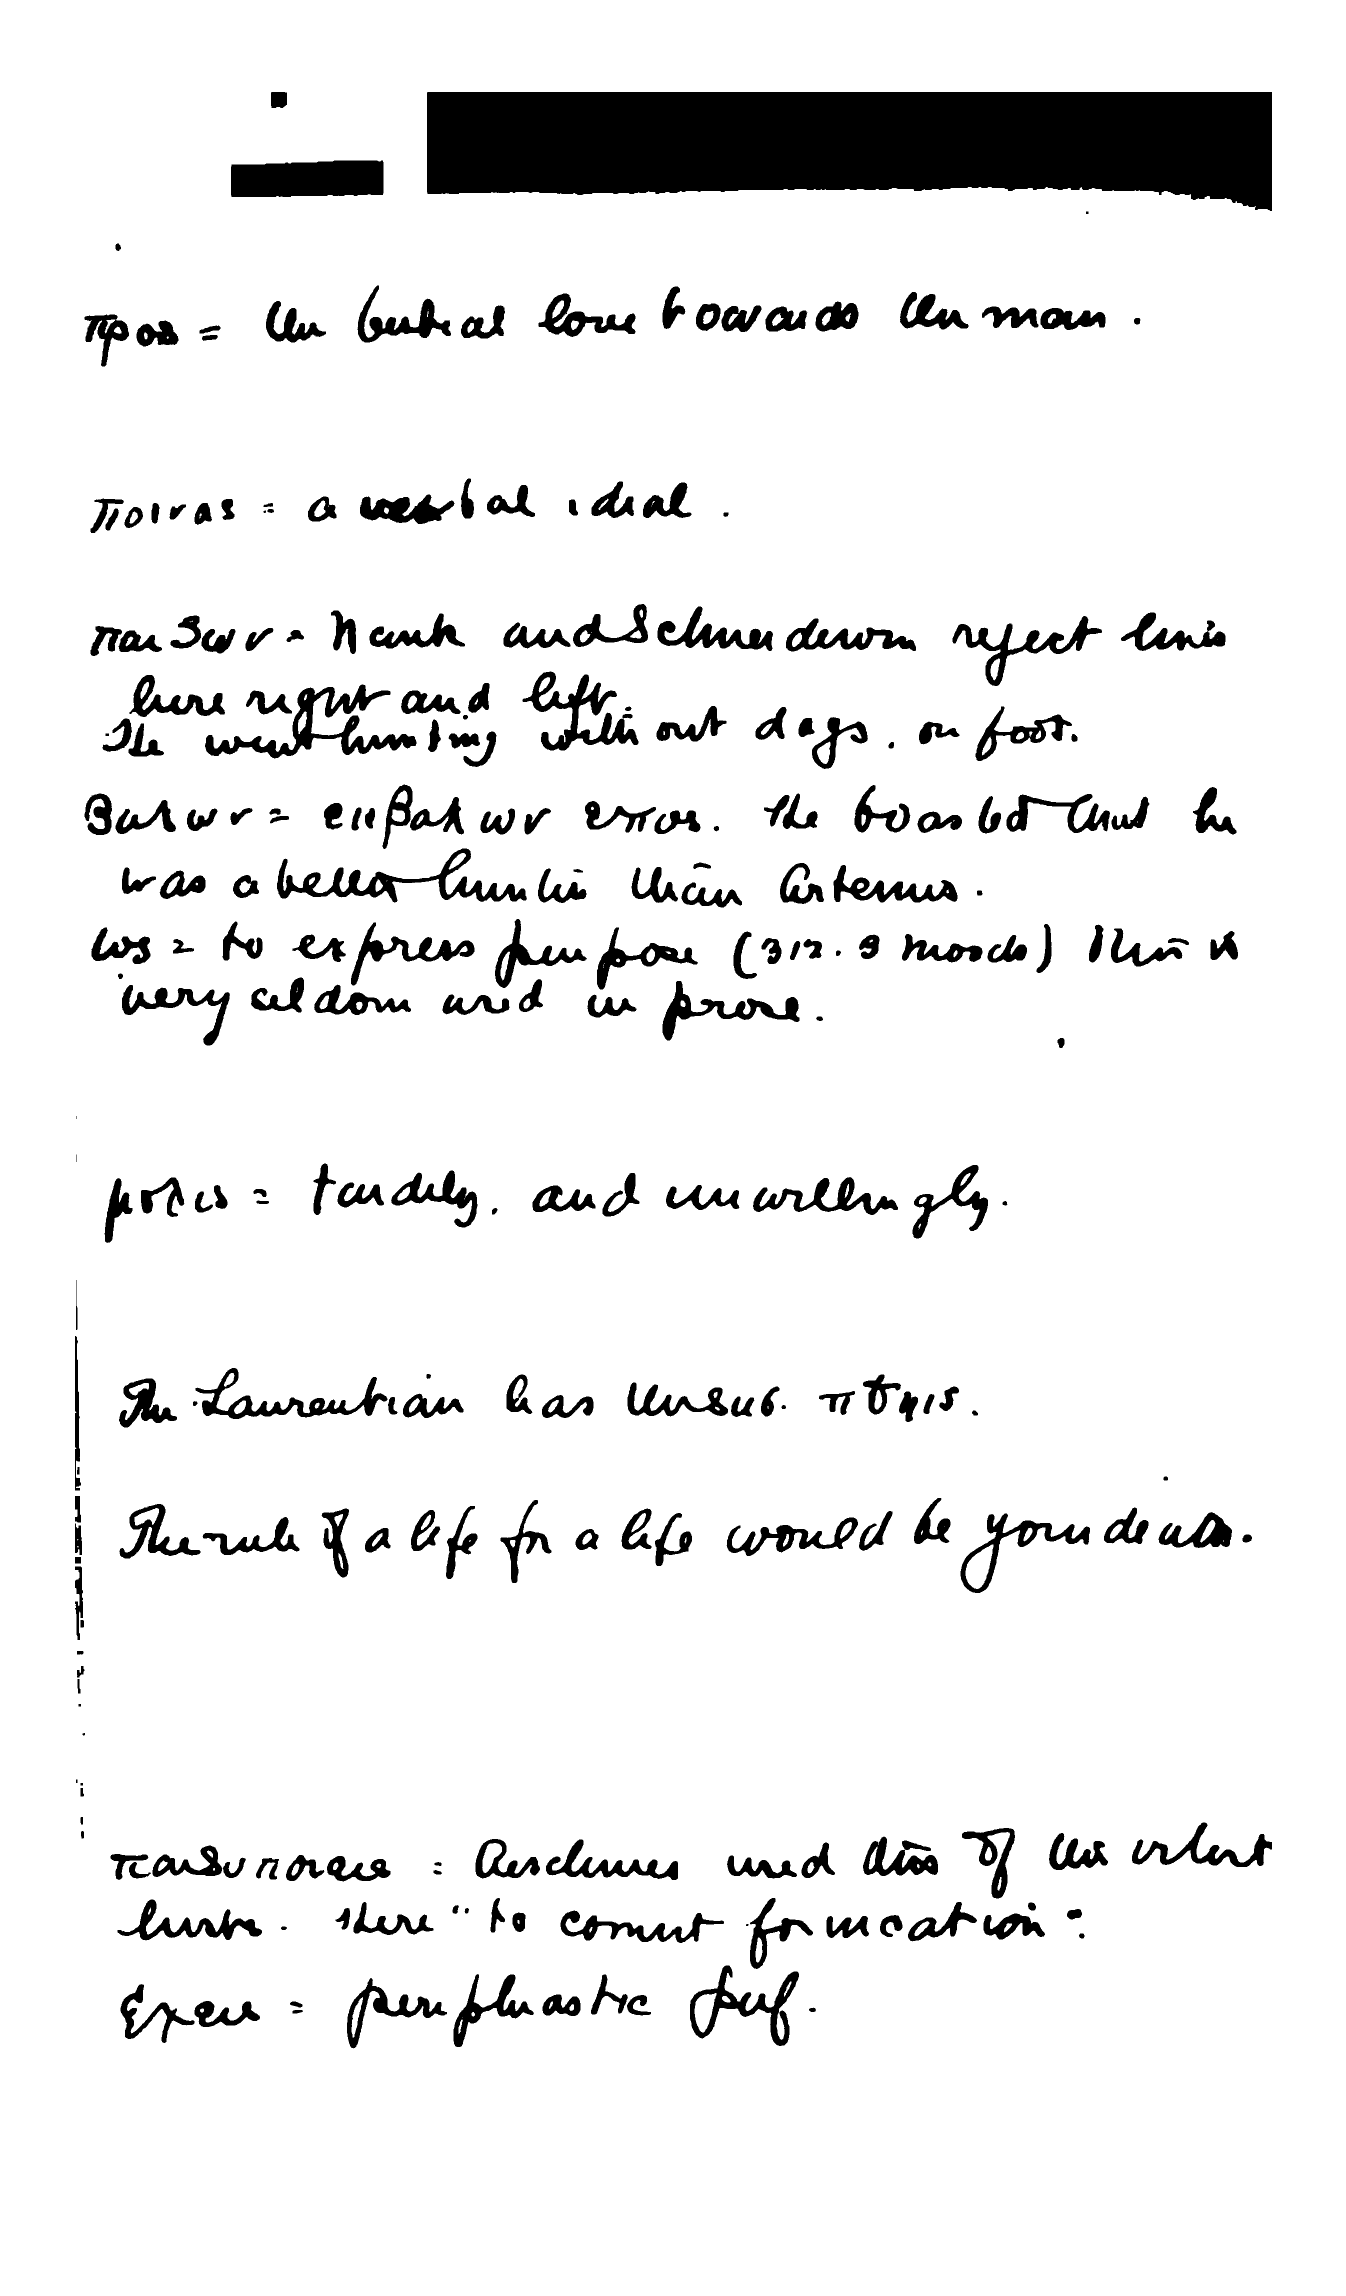 προς = the bestial love towards the man.
ποινας = a verbal ideal.
παιζων = Nauk and Schneidewin reject lines
here right and left.
He went hunting without dogs, on foot.
βαλων = εκβαλων επος. He boasted that he
was a better hunter than Artemis.
ως = to express purpose (312. 3 moods) This is
very seldom used in prose.
μολις = tardily, and unwillingly.
The Laurentian has the sub. πτῃις.
The rule of a life for a life would be your death.
= Aeschines used this of his violent
lusts. Here "to commit fornication".
Εχεις = periphrastic perf.